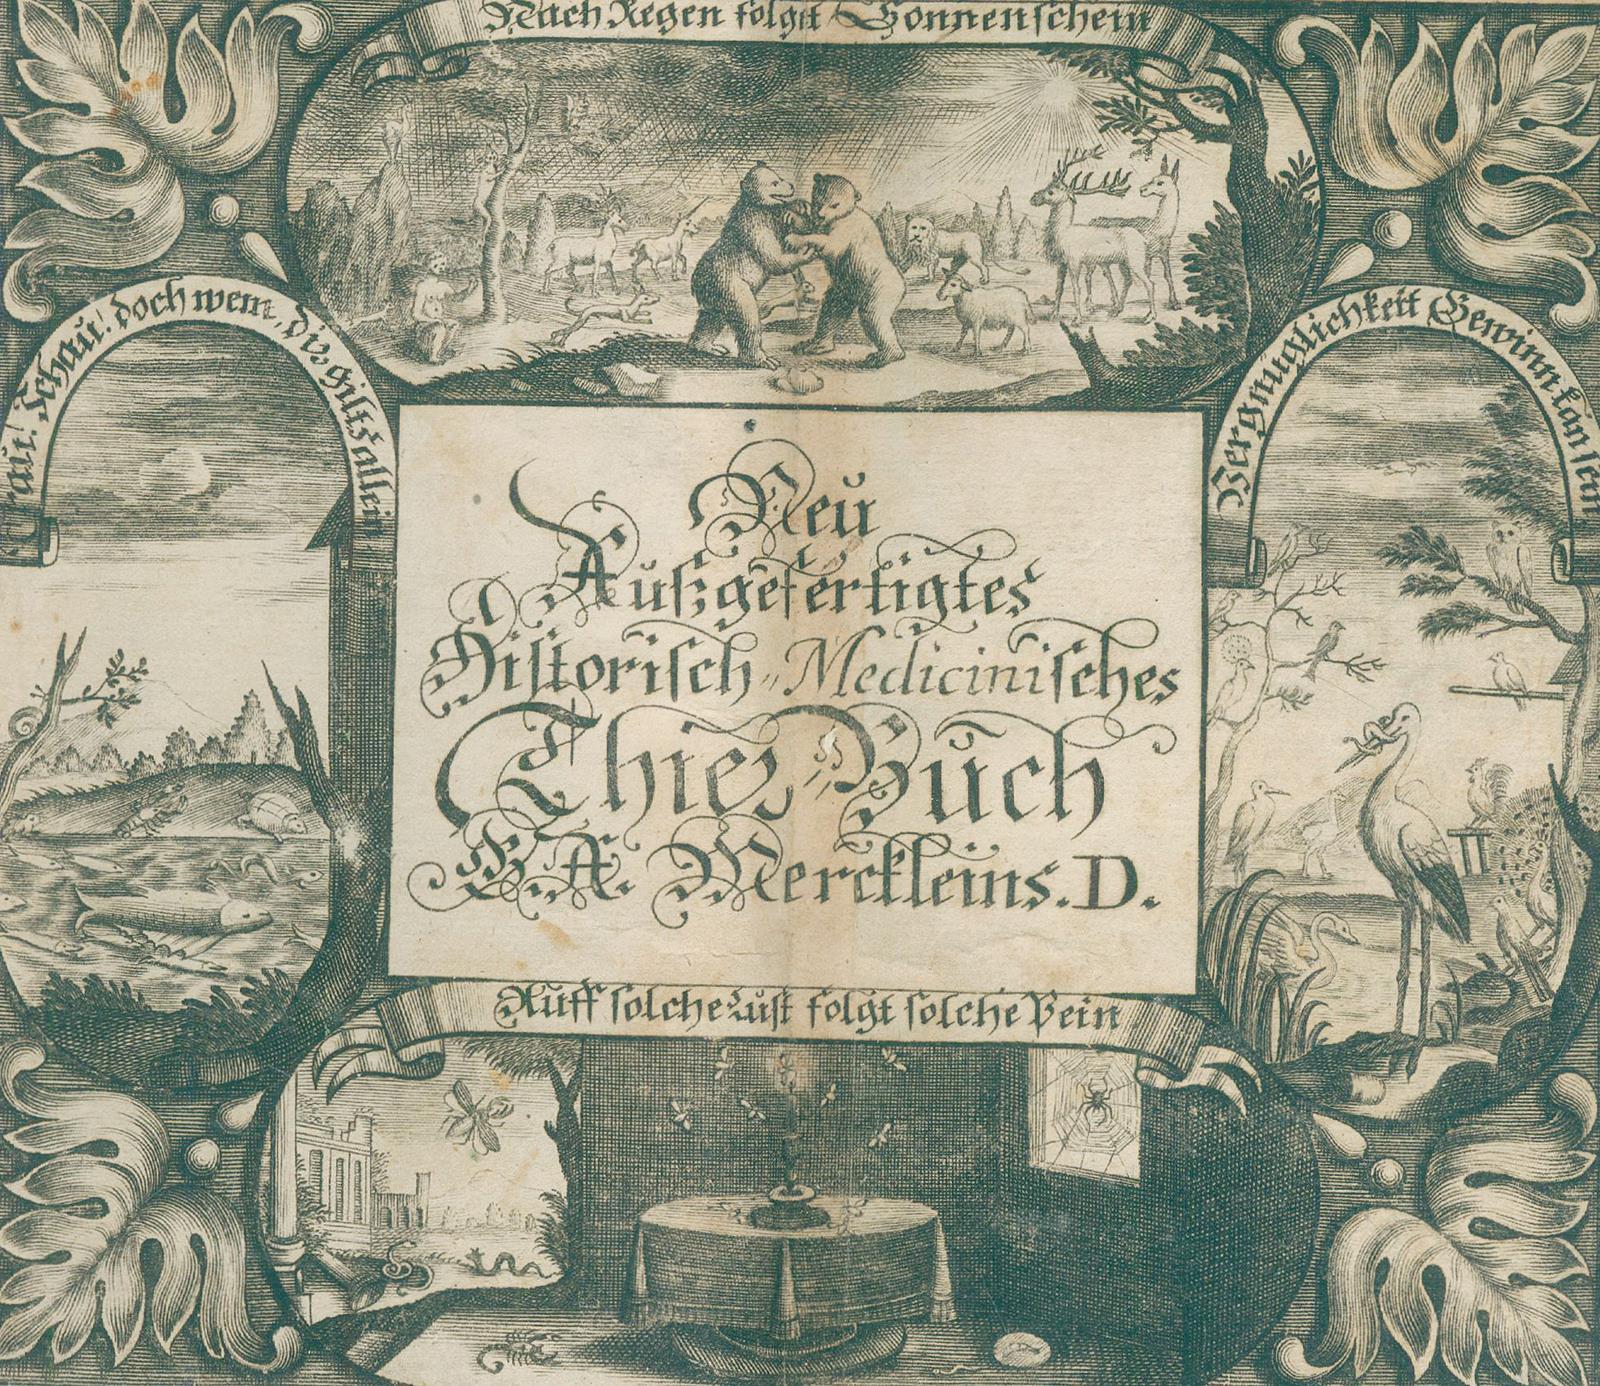 Nach Regen folgt Sonnenschein
Schau! doch wem, diß gilts allein
Vergnüglichkeit Gewinn kan sein
Neu
Außgefertigtes
Historisch-Medicinisches
Thier-Buch
G. A. Merckleins. D.
Auff solche Lust folgt solche Pein